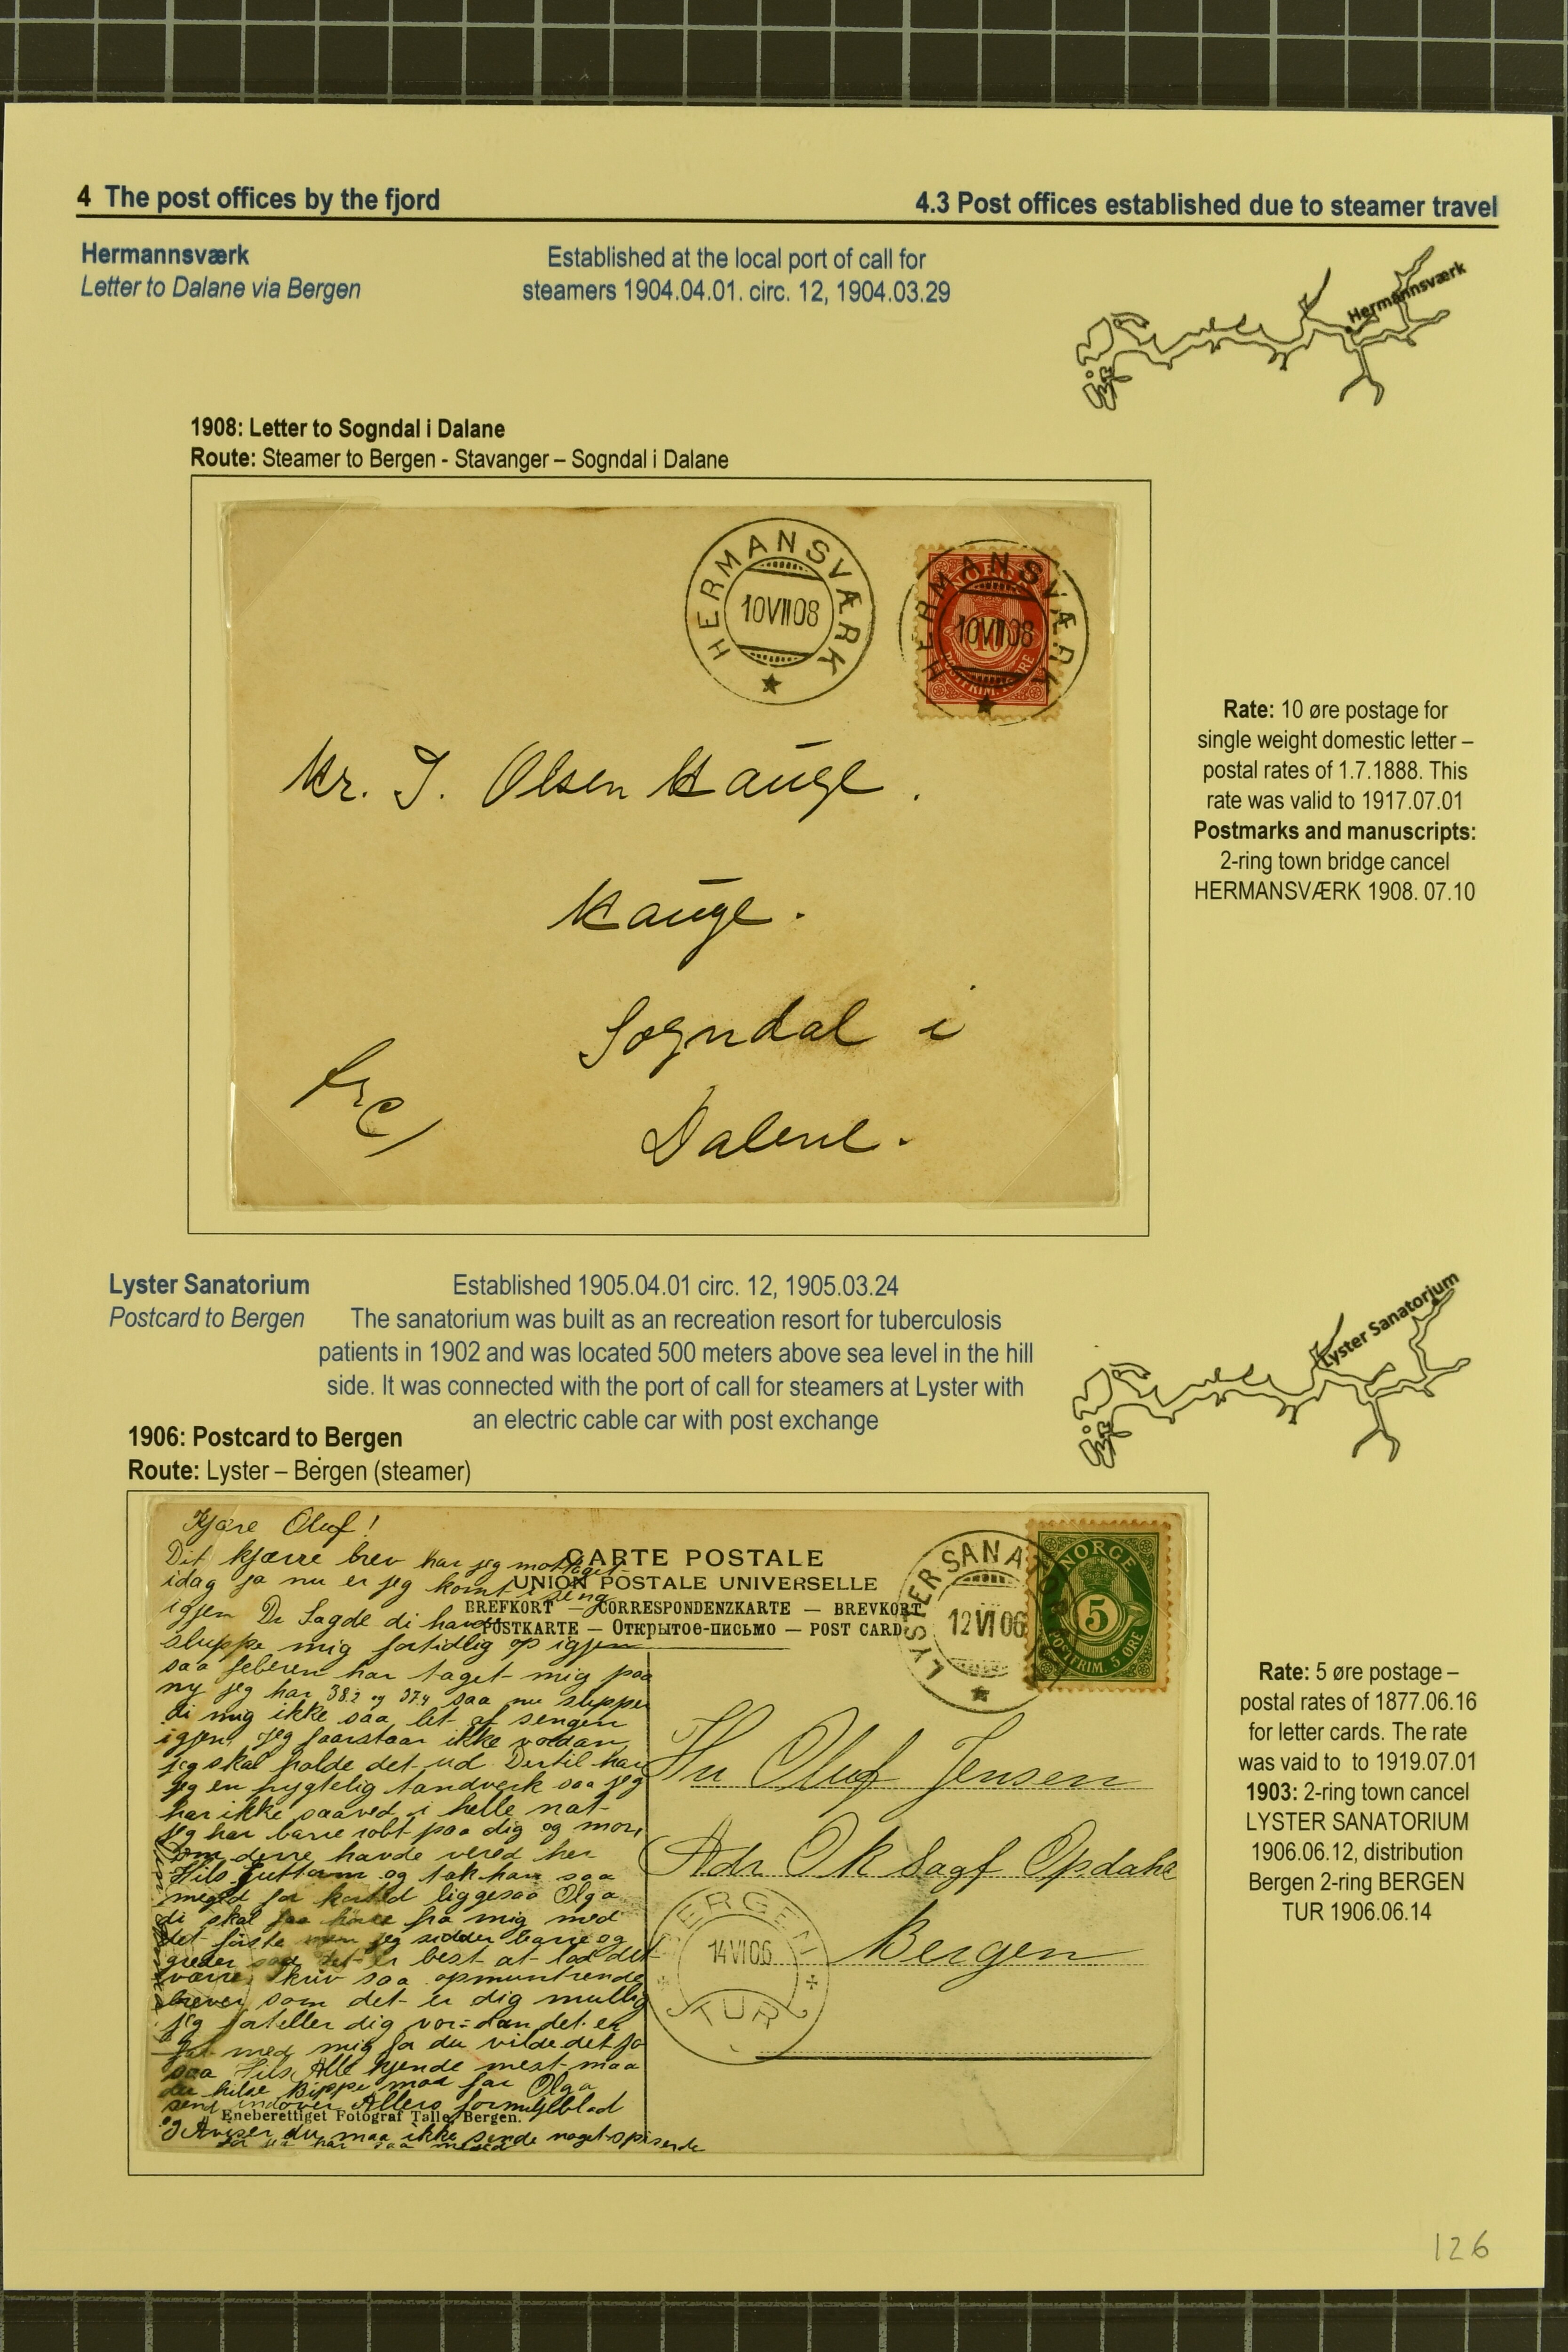 4 The post offices by the fjord
4.3 Post offices established due to steamer travel
Hermannsværk
Letter to Dalane via Bergen
Established at the local port of call for
steamers 1904.04.01. circ. 12, 1904.03.29
Hermannsværk
1908: Letter to Sogndal i Dalane
Route: Steamer to Bergen - Stavanger – Sogndal i Dalane
HERMANSVÆRK
10 VII 08
HERMANSVÆRK
10 VII 08
NORGE
10
Hr. I. Olsen Hauge.
Hauge.
Sogndal i
Dalene.
Rate: 10 øre postage for
single weight domestic letter –
postal rates of 1.7.1888. This
rate was valid to 1917.07.01
Postmarks and manuscripts:
2-ring town bridge cancel
HERMANSVÆRK 1908. 07.10
Lyster Sanatorium
Postcard to Bergen
Established 1905.04.01 circ. 12, 1905.03.24
The sanatorium was built as an recreation resort for tuberculosis
patients in 1902 and was located 500 meters above sea level in the hill
side. It was connected with the port of call for steamers at Lyster with
an electric cable car with post exchange
Lyster Sanatorium
1906: Postcard to Bergen
Route: Lyster – Bergen (steamer)
CARTE POSTALE
UNION POSTALE UNIVERSELLE
BREFKORT — CORRESPONDENZKARTE — BREVKORT
POSTKARTE — Открытое-письмо — POST CARD
LYSTER SANATORIUM
12 VI 06
NORGE
5
POSTFRIM. 5 ØRE
Kjære Oluf!
Dit kjærre brev har jeg mottaget
idag ja nu er jeg komt i seng
igjen De Sagde di havde
sluppe mig fortidlig op igjen
saa feberen har taget mig paa
ny jeg har 38.2 og 37.4 saa nu slipper
di mig ikke saa let af sengen
igjen, jeg faarstaar ikke vordan
jeg skal holde det ud Dertil har
jeg en hygtelig tandverk saa jeg
har ikke saaved i helle nat
jeg har barre robt paa dig og mor,
Om derre havde vered her
Hils Guttorm og tak han saa
meged for korted liggesaa Olga
di skal faa høre fra mig med
det første men jeg sidder barre og
græder saa det er best at lad det
værre, Skriv saa opmuntrende
brever som det er dig mullig
jeg forteller dig vor=dan det er
fat med mig for du vilde det jo
saa Hils Alle kjende mest maa
du hilse Bippe, mod far Olga
send indover Allers formiljeblad
og Aviser du maa ikke sende noget spisende
Eneberettiget Fotograf Talle, Bergen.
Hr Oluf Jensen
Adr O k Sagf Opdahl
Bergen
BERGEN
14 VI 06
TUR
Rate: 5 øre postage –
postal rates of 1877.06.16
for letter cards. The rate
was vaid to to 1919.07.01
1903: 2-ring town cancel
LYSTER SANATORIUM
1906.06.12, distribution
Bergen 2-ring BERGEN
TUR 1906.06.14
126